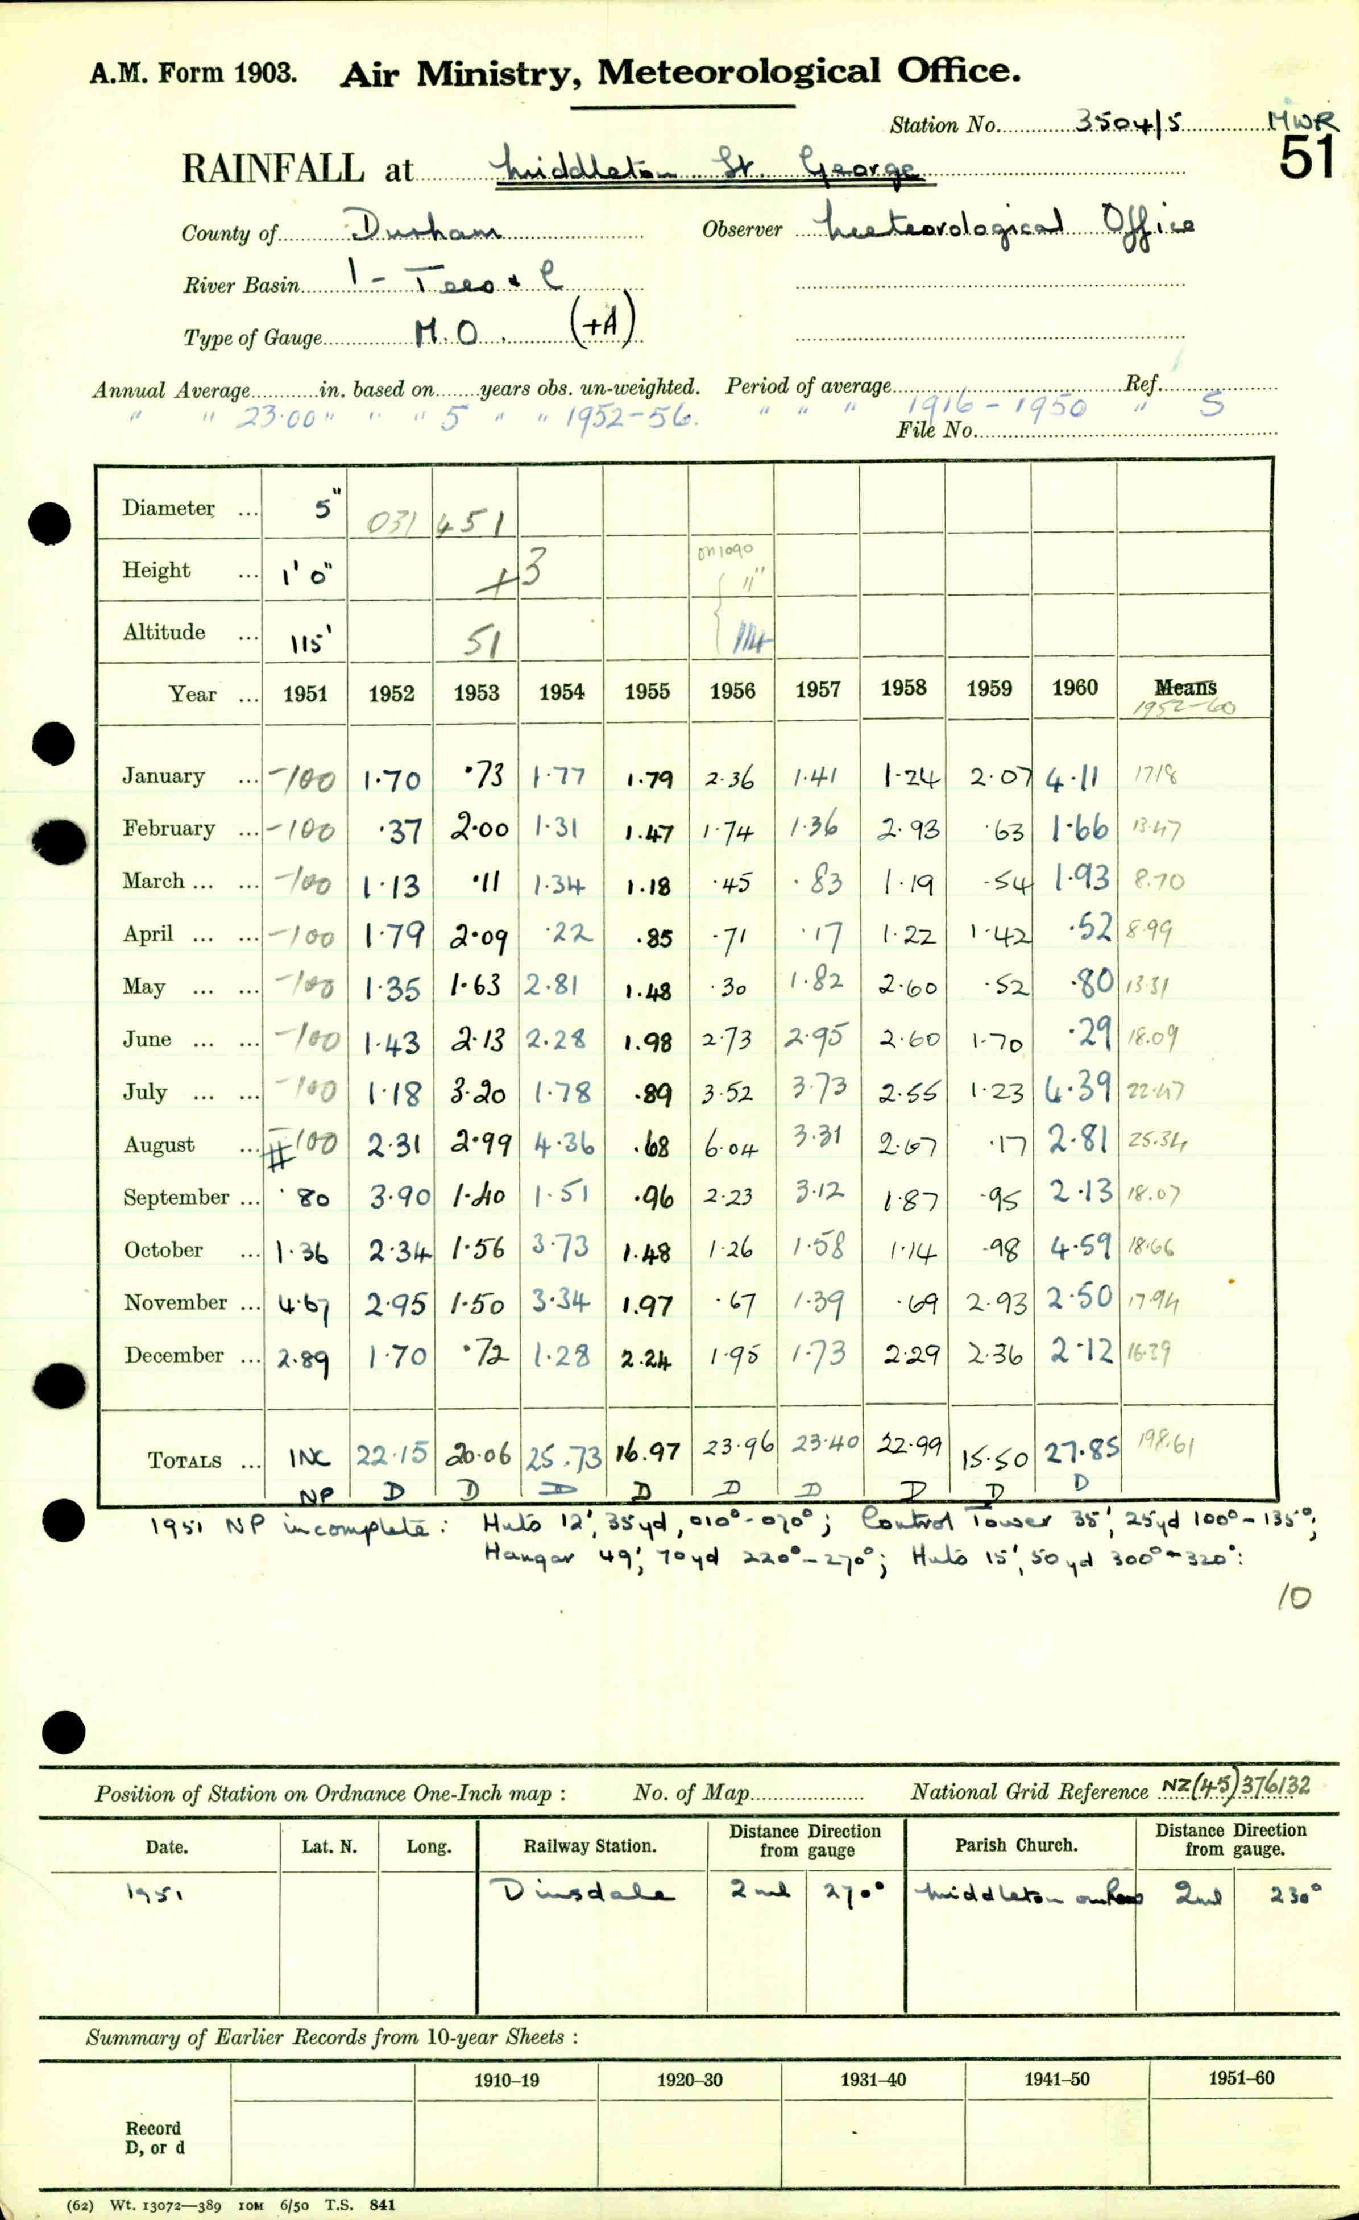 A.M. Form 1903. Air Ministry, Meteorological Office.
Station No. 3504/5 MWR
51
RAINFALL at Middleton St. George
County of Durham Observer Meteorological Office
River Basin 1 - Tees + C
Type of Gauge M.O. (+A)
Annual Average in. based on years obs. un-weighted. Period of average Ref.
" " 23.00 " " " 5 " " 1952-56. " " " 1916-1950 " S
File No.
Diameter ... 5" 031 451
Height ... 1' 0" +3 on 1090 11"
Altitude ... 115' 51 114
Year ... 1951 1952 1953 1954 1955 1956 1957 1958 1959 1960 Means
1952-60
January ... -100 1.70 .73 1.77 1.79 2.36 1.41 1.24 2.07 4.11 17.18
February ... -100 .37 2.00 1.31 1.47 1.74 1.36 2.93 .63 1.66 13.47
March ... ... -100 1.13 .11 1.34 1.18 .45 .83 1.19 .54 1.93 8.70
April ... ... -100 1.79 2.09 .22 .85 .71 .17 1.22 1.42 .52 8.99
May ... ... -100 1.35 1.63 2.81 1.48 .30 1.82 2.60 .52 .80 13.31
June ... ... -100 1.43 2.13 2.28 1.98 2.73 2.95 2.60 1.70 .29 18.09
July ... ... -100 1.18 3.20 1.78 .89 3.52 3.73 2.55 1.23 4.39 22.47
August ... # -100 2.31 2.99 4.36 .68 6.04 3.31 2.67 .17 2.81 25.34
September ... .80 3.90 1.40 1.51 .96 2.23 3.12 1.87 .95 2.13 18.07
October ... 1.36 2.34 1.56 3.73 1.48 1.26 1.58 1.14 .98 4.59 18.66
November ... 4.67 2.95 1.50 3.34 1.97 .67 1.39 .69 2.93 2.50 17.94
December ... 2.89 1.70 .72 1.28 2.24 1.95 1.73 2.29 2.36 2.12 16.39
TOTALS ... INC 22.15 20.06 25.73 16.97 23.96 23.40 22.99 15.50 27.85 198.61
NP D D D D D D D D D
1951 NP incomplete: Huts 12', 35yd, 010°-070°; Control Tower 35', 25yd 100°-135°;
Hangar 49', 70yd 220°-270°; Huts 15', 50yd 300°-320°:
10
Position of Station on Ordnance One-Inch map : No. of Map National Grid Reference NZ(45)376132
Date. Lat. N. Long. Railway Station. Distance Direction from gauge Parish Church. Distance Direction from gauge.
1951 Dinsdale 2 ml 270° Middleton 2ml 230°
Summary of Earlier Records from 10-year Sheets :
1910-19 1920-30 1931-40 1941-50 1951-60
Record
D, or d
(62) Wt. 13072—389 10M 6/50 T.S. 841